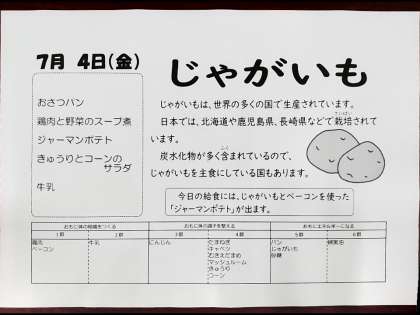 7月 4日(金)
じゃがいも
おさつパン
鶏肉と野菜のスープ煮
ジャーマンポテト
きゅうりとコーンの
サラダ
牛乳
じゃがいもは、世界の多くの国で生産されています。
日本では、北海道や鹿児島県、長崎県などで栽培されて
います。
炭水化物が多く含まれているので、
じゃがいもを主食にしている国もあります。
今日の給食には、じゃがいもとベーコンを使った
「ジャーマンポテト」が出ます。
おもに体の組織をつくる おもに体の調子を整える おもにエネルギーになる
1群 2群 3群 4群 5群 6群
鶏肉 牛乳 にんじん たまねぎ パン
ベーコン キャベツ じゃがいも
むきえだまめ 砂糖
マッシュルーム
きゅうり
コーン